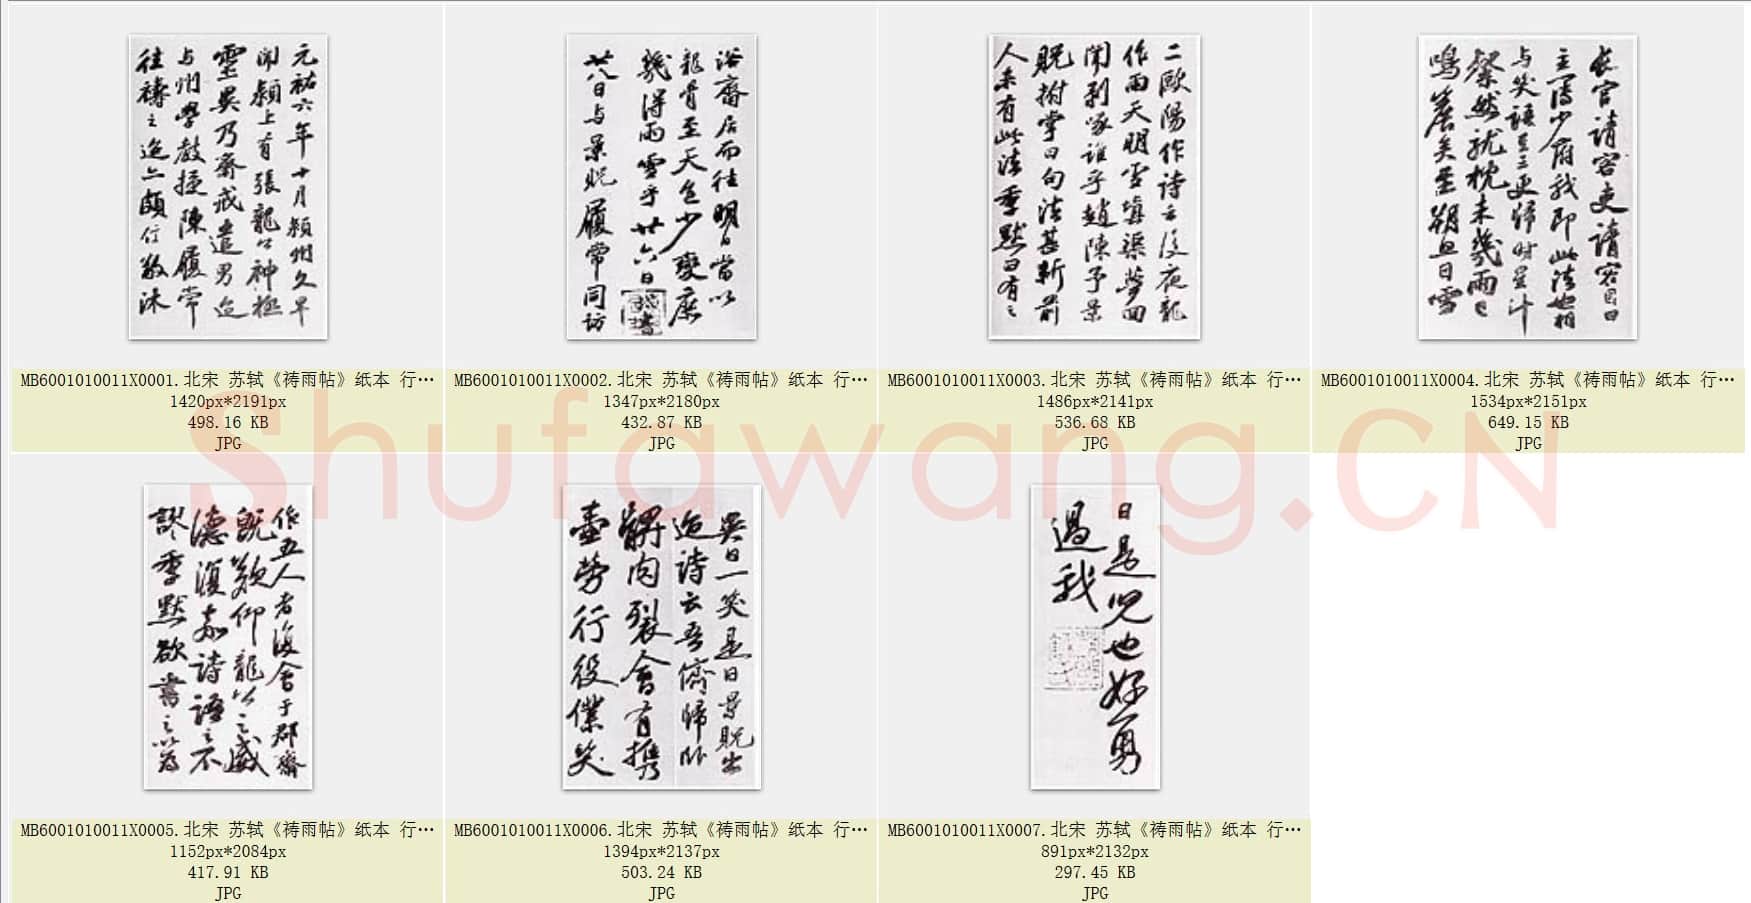 元祐六年十月潁州久旱
聞潁上有張龍公神極
靈異乃齋戒遣男迨
与州學教授陳履常
往禱之迨亦頗信敬沐
MB6001010011X0001.北宋 苏轼《祷雨帖》纸本 行…
1420px*2191px
498.16 KB
JPG
浴齋居而往明日當以
龍骨至天色少變庶
幾得雨雪乎廿六日
廿八日与景貺履常同訪
MB6001010011X0002.北宋 苏轼《祷雨帖》纸本 行…
1347px*2180px
432.87 KB
JPG
二歐陽作詩云後夜龍
作雨天明雪填渠夢回
聞剥啄誰乎趙陳予景
貺拊掌曰句法甚新前
人未有此法季默曰有之
MB6001010011X0003.北宋 苏轼《祷雨帖》纸本 行…
1486px*2141px
536.68 KB
JPG
長官請客吏請客目曰
主簿少府我即此法也相
与笑語至三更歸時星斗
粲然就枕未幾雨已
鳴簷矣至朔旦日雪
MB6001010011X0004.北宋 苏轼《祷雨帖》纸本 行…
1534px*2151px
649.15 KB
JPG
作五人者復會于郡齋
既歎仰龍公之威
德復嘉詩語之不
謬季默欲書之以為
MB6001010011X0005.北宋 苏轼《祷雨帖》纸本 行…
1152px*2084px
417.91 KB
JPG
異日一笑是日景貺出
迨詩云吾儕歸卧
髀肉裂會有攜
壺勞行役僕笑
MB6001010011X0006.北宋 苏轼《祷雨帖》纸本 行…
1394px*2137px
503.24 KB
JPG
曰是児也好勇
過我
MB6001010011X0007.北宋 苏轼《祷雨帖》纸本 行…
891px*2132px
297.45 KB
JPG
Shufawang.CN